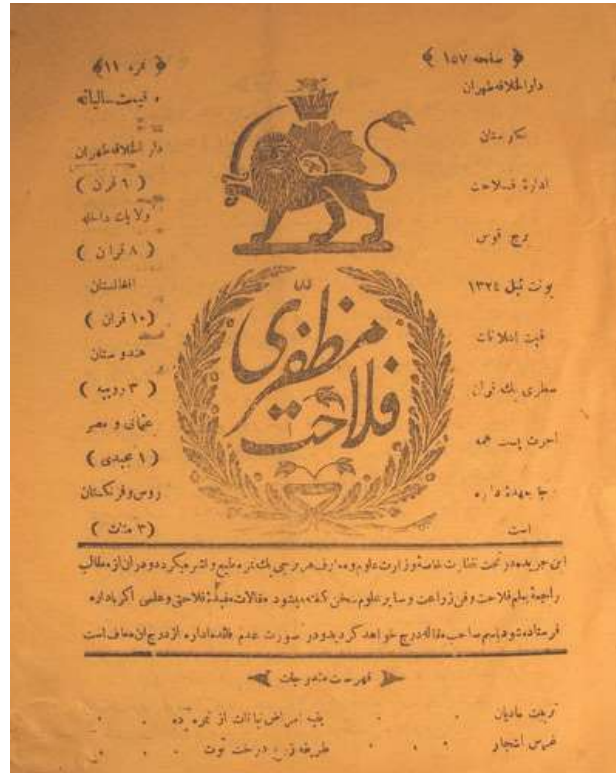 صفحه ۱۵۷
دارالخلافه طهران
نکارستان
ادارهٔ فلاحت
برج قوس
یونت ئیل ۱۳۲٤
قیمت اعلانات
سطری یك قران
اجرت پست همه
جا بعهدهٔ داره
است
نمره ۱۱
قیمت سالیانه
دار الخلافه طهران
( ٦ قران )
ولایات داخله
( ۸ قران )
افغانستان
( ۱۰ قران )
هندوستان
( ۳ روپیه )
عثمانی و مصر
( ۱ مجیدی )
روس و فرنكستان
( ۳ منات )
فلاحت مظفّری
این جریده در تحت نظارت خاصهٔ وزارت علوم و معارف هر برجی یك نمره طبع و نشر میكردد و در ان از مطالب
راجعهٔ بعلم فلاحت و فن زراعت و سایر علوم سخن كفته میشود مقالات مفیدهٔ فلاحتی و علمی اكر باداره
فرستاده شود باسم صاحب مقاله درج خواهد كردید و در صورت عدم فائده اداره از درج ان معاف است
فهرست مندرجات
تربیت مادیان
بقیه امراض نباتات از نمره ده
غرس اشجار
طریقه زرع درخت توت